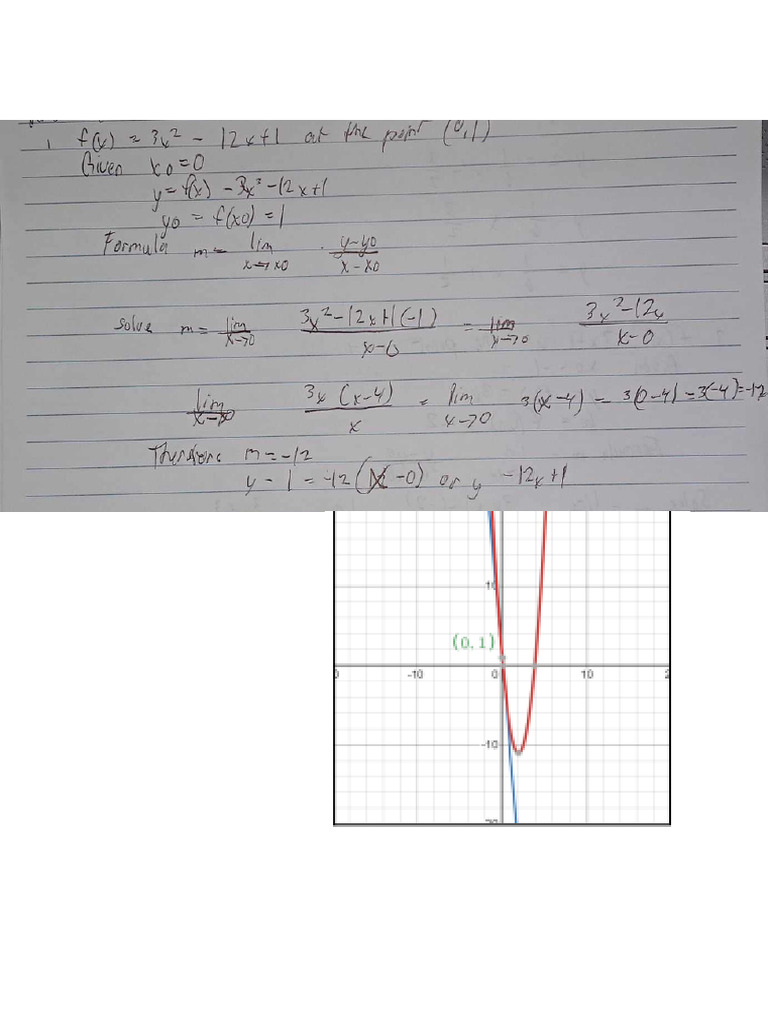 1 f(x) = 3x² - 12x+1 at the point (0,1)
Given x0=0
y=f(x) - 3x²-12x+1
y0 = f(x0) = 1
Formula m= lim x→x0 . y-y0 / x-x0
solve m= lim x→0 3x²-12x+1(-1) / x-0 = lim x→0 3x²-12x / x-0
lim x→0 3x (x-4) / x = lim x→0 3(x-4) = 3(0-4) = 3(-4)=-12
Therefore m=-12
y - 1 = -12(x-0) or y -12x+1
10
(0, 1)
0 -10 0 10 2
-10